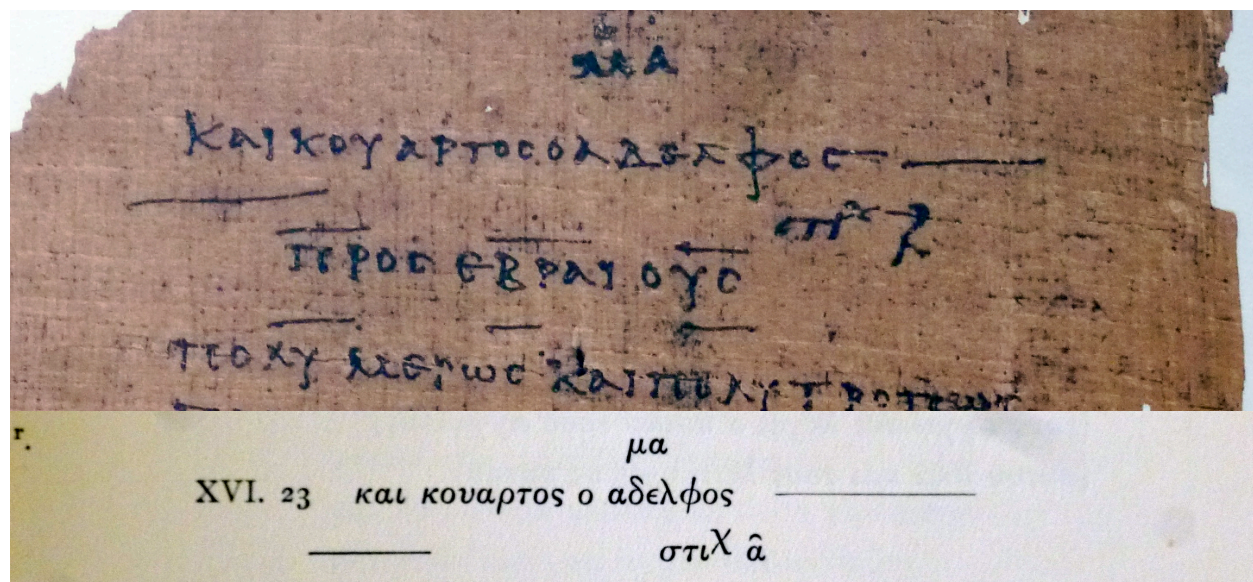 μα
και κουαρτος ο αδελφος
στιχ
προς εβραιους
πολυμερως και πολυτροπως
r.
μα
XVI. 23 και κουαρτος ο αδελφος
στιχ α̂